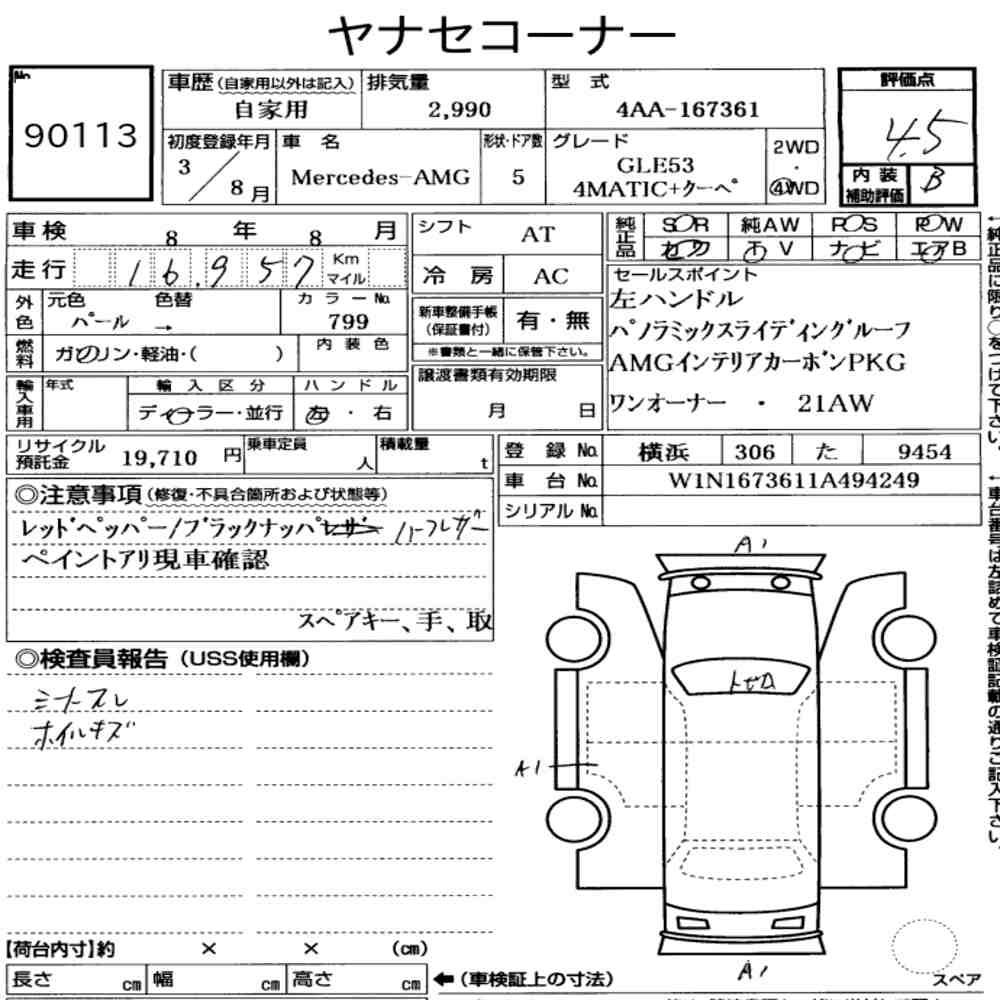 ヤナセコーナー
No.
90113
車歴(自家用以外は記入)
自家用
排気量
2,990
型 式
4AA-167361
評価点
4.5
初度登録年月
3/8月
車 名
Mercedes-AMG
形状・ドア数
5
グレード
GLE53
4MATIC+クーペ
2WD
・
4WD
内 装
補助評価
B
車検 8 年 8 月
走行 16,957 Km マイル
シフト AT
冷 房 AC
純正品
SOR 純AW POS POW
カワ TV ナビ エアB
外色
元色 色替
パール →
カラーNo.
799
新車整備手帳
(保証書付)
有・無
※書類と一緒に保管下さい。
セールスポイント
左ハンドル
パノラミックスライディングルーフ
AMGインテリアカーボンPKG
ワンオーナー ・ 21AW
燃料
ガソリン・軽油・( )
内装色
譲渡書類有効期限
月 日
輸入車用
年式
輸入区分
ディーラー・並行
ハンドル
左・右
リサイクル
預託金
19,710 円
乗車定員
人
積載量
t
登録No. 横浜 306 た 9454
車台No. W1N1673611A494249
シリアルNo.
◎注意事項(修復・不具合箇所および状態等)
レッドペッパー/ブラックナッパレザー ハーフレザー
ペイントアリ現車確認
スペアキー、手、取
◎検査員報告(USS使用欄)
ミナースレ
ホイルキズ
A1
トビA
A1
A1
【荷台内寸】約 × × (cm)
長さ cm 幅 cm 高さ cm
←(車検証上の寸法)
スペア
←純正品に限り○をつけて下さい。
←車台番号は左詰めで車検証記載の通りご記入下さい。